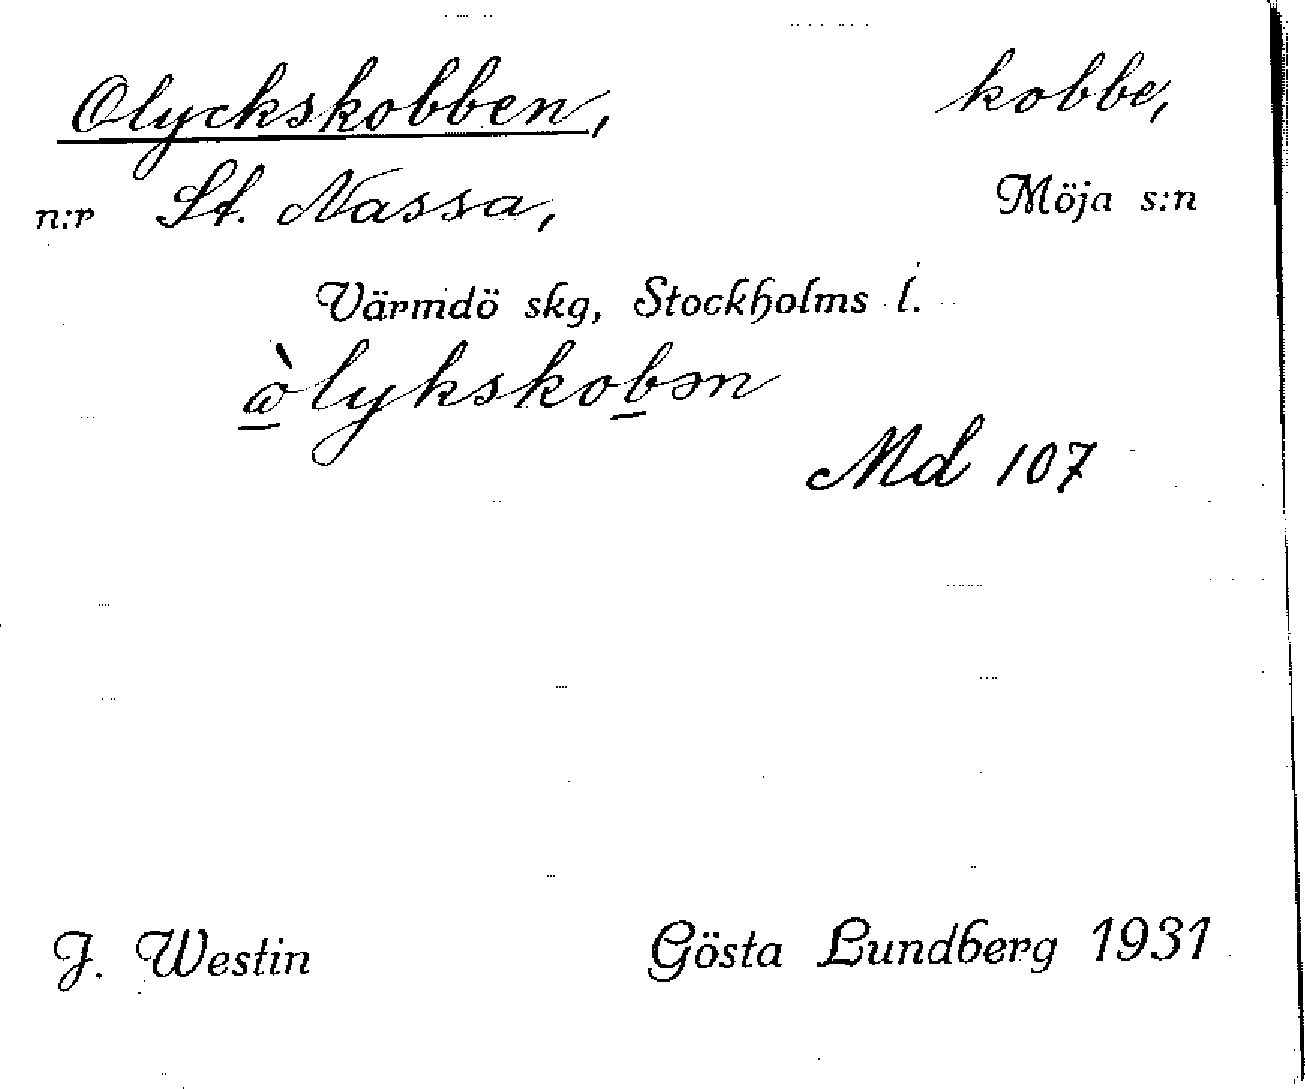 Olyckskobben, kobbe,
n:r St. Nassa, Möja s:n
Värmdö skg, Stockholms l.
ὼlykskobən
Md 107
J. Westin Gösta Lundberg 1931